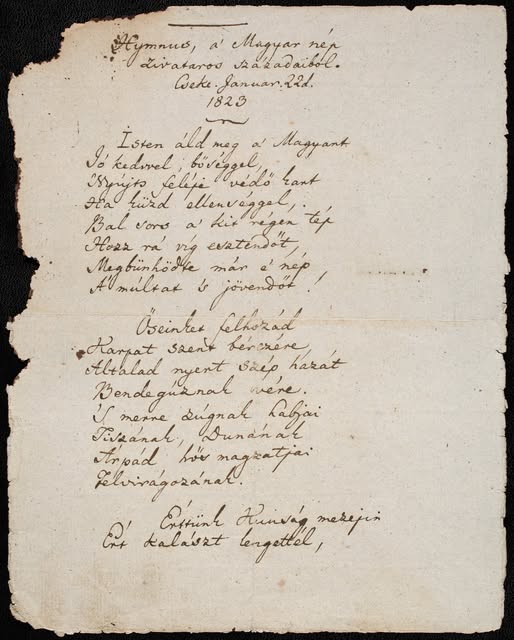 Hymnus, a' Magyar nép
zivataros századaiból.
Cseke. Januar. 22d.
1823
Isten áld meg a' Magyart
Jó kedvvel, bőséggel,
Nyújts feléje védő kart
Ha küzd ellenséggel,
Bal sors a' kit régen tép
Hozz rá víg esztendőt,
Megbünhödte már e' nép
A multat 's jövendőt!
Őseinket felhozád
Kárpát szent bérczére,
Általad nyert szép hazát
Bendegúznak vére.
'S merre zúgnak habjai
Tiszának, Dunának
Árpád hős magzatjai
Felvirágozának.
Értünk Kunság mezején
Ért kalászt lengettél,